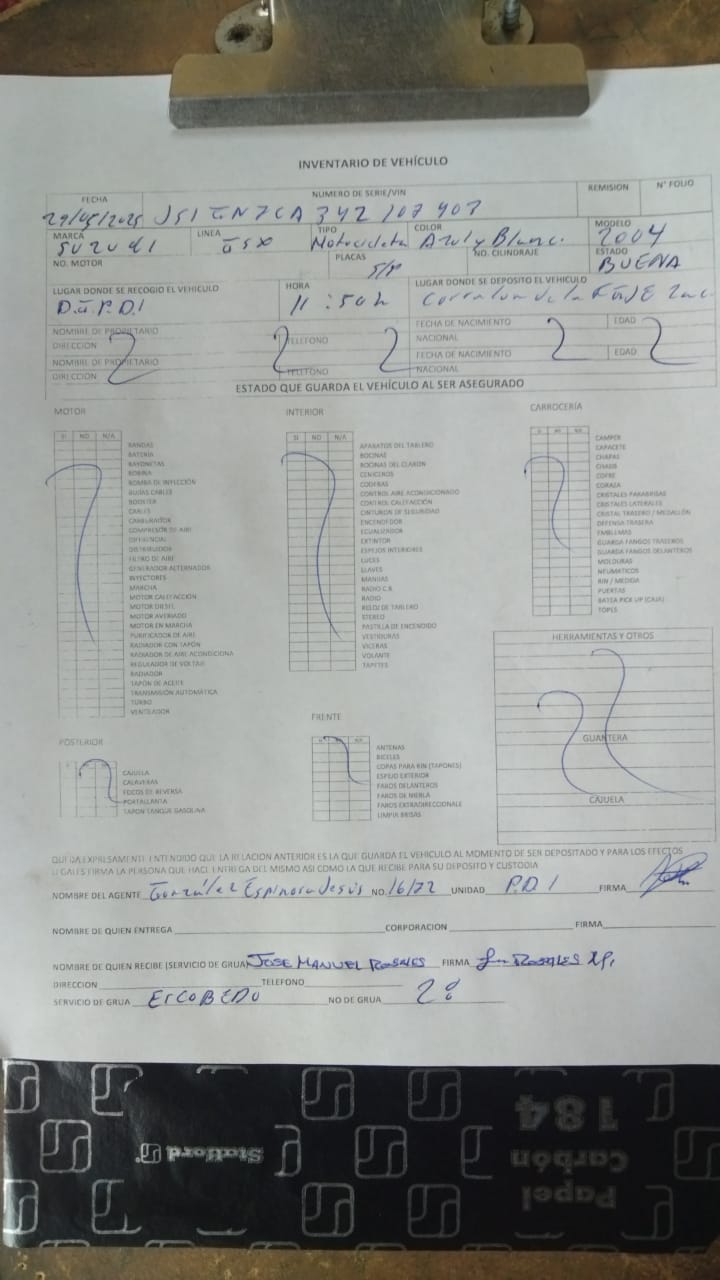 INVENTARIO DE VEHÍCULO
FECHA NUMERO DE SERIE/VIN REMISION N° FOLIO
29/05/2025
MARCA LINEA TIPO COLOR MODELO
SUZUKI GSX Motocicleta Azul y Blanc. 2004
NO. MOTOR PLACAS NO. CILINDRAJE ESTADO
S/P BUENA
LUGAR DONDE SE RECOGIO EL VEHICULO HORA LUGAR DONDE SE DEPOSITO EL VEHICULO
11:50h Corralon de la
NOMBRE DE PROPIETARIO FECHA DE NACIMIENTO EDAD
DIRECCION TELEFONO NACIONAL
NOMBRE DE PROPIETARIO FECHA DE NACIMIENTO EDAD
DIRECCION TELEFONO NACIONAL
ESTADO QUE GUARDA EL VEHÍCULO AL SER ASEGURADO
MOTOR
SI NO N/A
BANDAS
BATERÍA
BAYONETAS
BOBINA
BOMBA DE INYECCIÓN
BUJÍAS CABLES
BOOSTER
CABLES
CARBURADOR
COMPRESOR DE AIRE
DIFERENCIAL
DISTRIBUIDOR
FILTRO DE AIRE
GENERADOR ALTERNADOR
INYECTORES
MARCHA
MOTOR CALEFACCIÓN
MOTOR DIESEL
MOTOR AVERIADO
MOTOR EN MARCHA
PURIFICADOR DE AIRE
RADIADOR CON TAPÓN
RADIADOR DE AIRE ACONDICIONA
REGULADOR DE VOLTAJE
RADIADOR
TAPÓN DE ACEITE
TRANSMISIÓN AUTOMÁTICA
TURBO
VENTILADOR
INTERIOR
SI NO N/A
APARATOS DEL TABLERO
BOCINAS
BOCINAS DEL CLARON
CENICEROS
CODERAS
CONTROL AIRE ACONDICIONADO
CONTROL CALEFACCIÓN
CINTURON DE SEGURIDAD
ENCENDEDOR
ECUALIZADOR
EXTINTOR
ESPEJOS INTERIORES
LUCES
LLAVES
MANIJAS
RADIO C.B.
RADIO
RELOJ DE TABLERO
STEREO
PASTILLA DE ENCENDIDO
VESTIDURAS
VICERAS
VOLANTE
TAPETES
CARROCERÍA
CAMPER
CAPACETE
CHAPAS
COFRE
CORAZA
CRISTALES PARABRISAS
CRISTALES LATERALES
CRISTAL TRASERO / MEDALLÓN
DEFENSA TRASERA
EMBLEMAS
GUARDA FANGOS TRASEROS
GUARDA FANGOS DELANTEROS
MOLDURAS
NEUMATICOS
RIN / MEDIDA
PUERTAS
BATEA PICK UP (CAJA)
TOPES
HERRAMIENTAS Y OTROS
GUANTERA
CAJUELA
POSTERIOR
CAJUELA
CALAVERAS
FOCOS DE REVERSA
PORTALLANTA
TAPON TANQUE GASOLINA
FRENTE
ANTENAS
BICELES
COPAS PARA RIN (TAPONES)
ESPEJO EXTERIOR
FAROS DELANTEROS
FAROS DE NIEBLA
FAROS EXTRADIRECCIONALE
LIMPIA BRISAS
QUEDA EXPRESAMENTE ENTENDIDO QUE LA RELACION ANTERIOR ES LA QUE GUARDA EL VEHICULO AL MOMENTO DE SER DEPOSITADO Y PARA LOS EFECTOS
LEGALES FIRMA LA PERSONA QUE HACE ENTREGA DEL MISMO ASI COMO LA QUE RECIBE PARA SU DEPOSITO Y CUSTODIA
NOMBRE DEL AGENTE González Espinosa Jesús NO. UNIDAD P.D.I FIRMA
NOMBRE DE QUIEN ENTREGA CORPORACION FIRMA
NOMBRE DE QUIEN RECIBE (SERVICIO DE GRUA) JOSE MANUEL ROSALES FIRMA
DIRECCION TELEFONO
SERVICIO DE GRUA ESCOBEDO NO DE GRUA
Papel
Carbón
184
Stafford